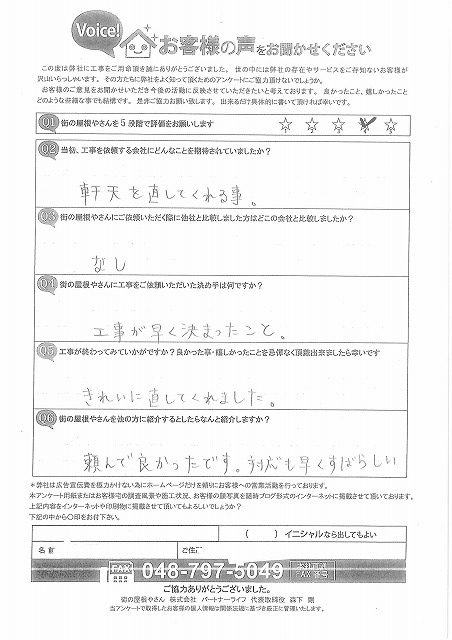 Voice!
お客様の声をお聞かせください
この度は弊社に工事をご用命頂き誠にありがとうございました。世の中には弊社の存在やサービスをご存知ないお客様が
沢山いらっしゃいます。その方たちに弊社をよく知って頂くためのアンケートにご協力頂けないでしょうか。
お客様のご意見をお聞かせいただき今後の活動に反映させていただきたいと考えております。良かったこと、嬉しかったこと
どのような些細な事でも結構です。是非ご協力お願い致します。出来るだけ具体的に書いて頂ければ幸いです。
Q1 街の屋根やさんを5段階で評価をお願いします ☆ ☆ ☆ ☆ ☆
Q2 当初、工事を依頼する会社にどんなことを期待されていましたか?
軒天を直してくれる事。
Q3 街の屋根やさんにご依頼いただく際に他社と比較しました方はどこの会社と比較しましたか?
なし
Q4 街の屋根やさんに工事をご依頼いただいた決め手は何ですか?
工事が早く決まったこと。
Q5 工事が終わってみていかがですか?良かった事・嬉しかったことを忌憚なく頂戴出来ましたら幸いです
きれいに直してくれました。
Q6 街の屋根やさんを他の方に紹介するとしたらなんと紹介しますか?
頼んで良かったです。対応も早くすばらしい
*弊社は広告宣伝費を極力かけない為にホームページだけを頼りにお客様への営業活動を行っております。
本アンケート用紙またはお客様宅の調査風景や施工状況、お客様の顔写真を随時ブログ形式のインターネットに掲載させて頂いております。
上記内容をインターネットや印刷物に掲載させて頂いてもよろしいでしょうか?
下記の中から〇印をお付下さい。
( ) イニシャルなら出してもよい
名前
ご住
FAX 048-797-5049 FAX番号
ご協力ありがとうございました。
街の屋根やさん 株式会社 パートナーライフ 代表取締役 森下 剛
当アンケートで取得したお客様の個人情報は関係法規に基づき厳正に管理いたします。